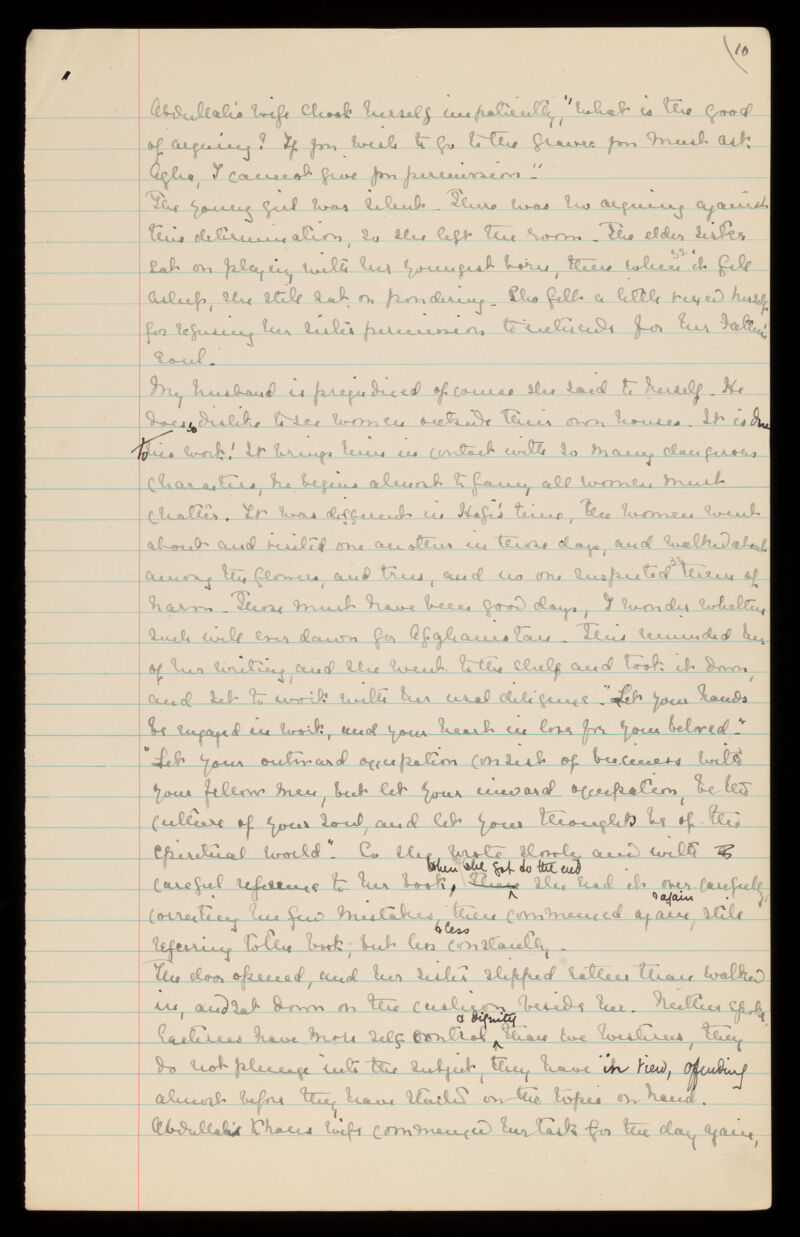 10
Abdullah's wife shook herself impatiently, "What is the good
of arguing? If you wish to go to the graves you must ask
Agha, I cannot give you permission."
The young girl was silent. There was no arguing against
this determination, so she left the room. The elder sister
sat on playing with her youngest born, then when it fell
asleep, she still sat on pondering. She felt a little vexed herself
for refusing her sister permission to intercede for her Father's
soul.
My husband is prejudiced of course she said to herself. He
does so dislike to see women outside their own houses. It is due
to his work! It brings him in contact with so many dangerous
characters, he begins almost to fancy all women must
chatter. It was different in Hafiz's time, the women went
about and visited one another in those days, and walked about
among the flowers, and trees, and no one suspected them of
harm. Those must have been good days, I wonder whether
such will ever dawn for Afghanistan. This reminded her
of her writing, and she went to the shelf and took it down,
and set to work with her usual diligence. "Let your hands
be engaged in work, and your heart in love for your beloved."
"Let your outward occupation consist of business with
your fellow men, but let your inward occupation, be the
culture of your soul, and let your thoughts be of the
spiritual world". So she wrote slowly and with
when she got to the end
careful reference to her book, then she read it over carefully,
again
correcting her few mistakes, then commenced again, still
less
referring to the book, but less constantly.
The door opened, and her sister slipped rather than walked
in, and sat down on the cushion beside her. Neither spoke.
& dignity
Easterns have more self control than we westerns, they
do not plunge into the subject, they have in view, offending
almost before they have started on the topic on hand.
Abdullah Khans wife commenced her task for the day again,